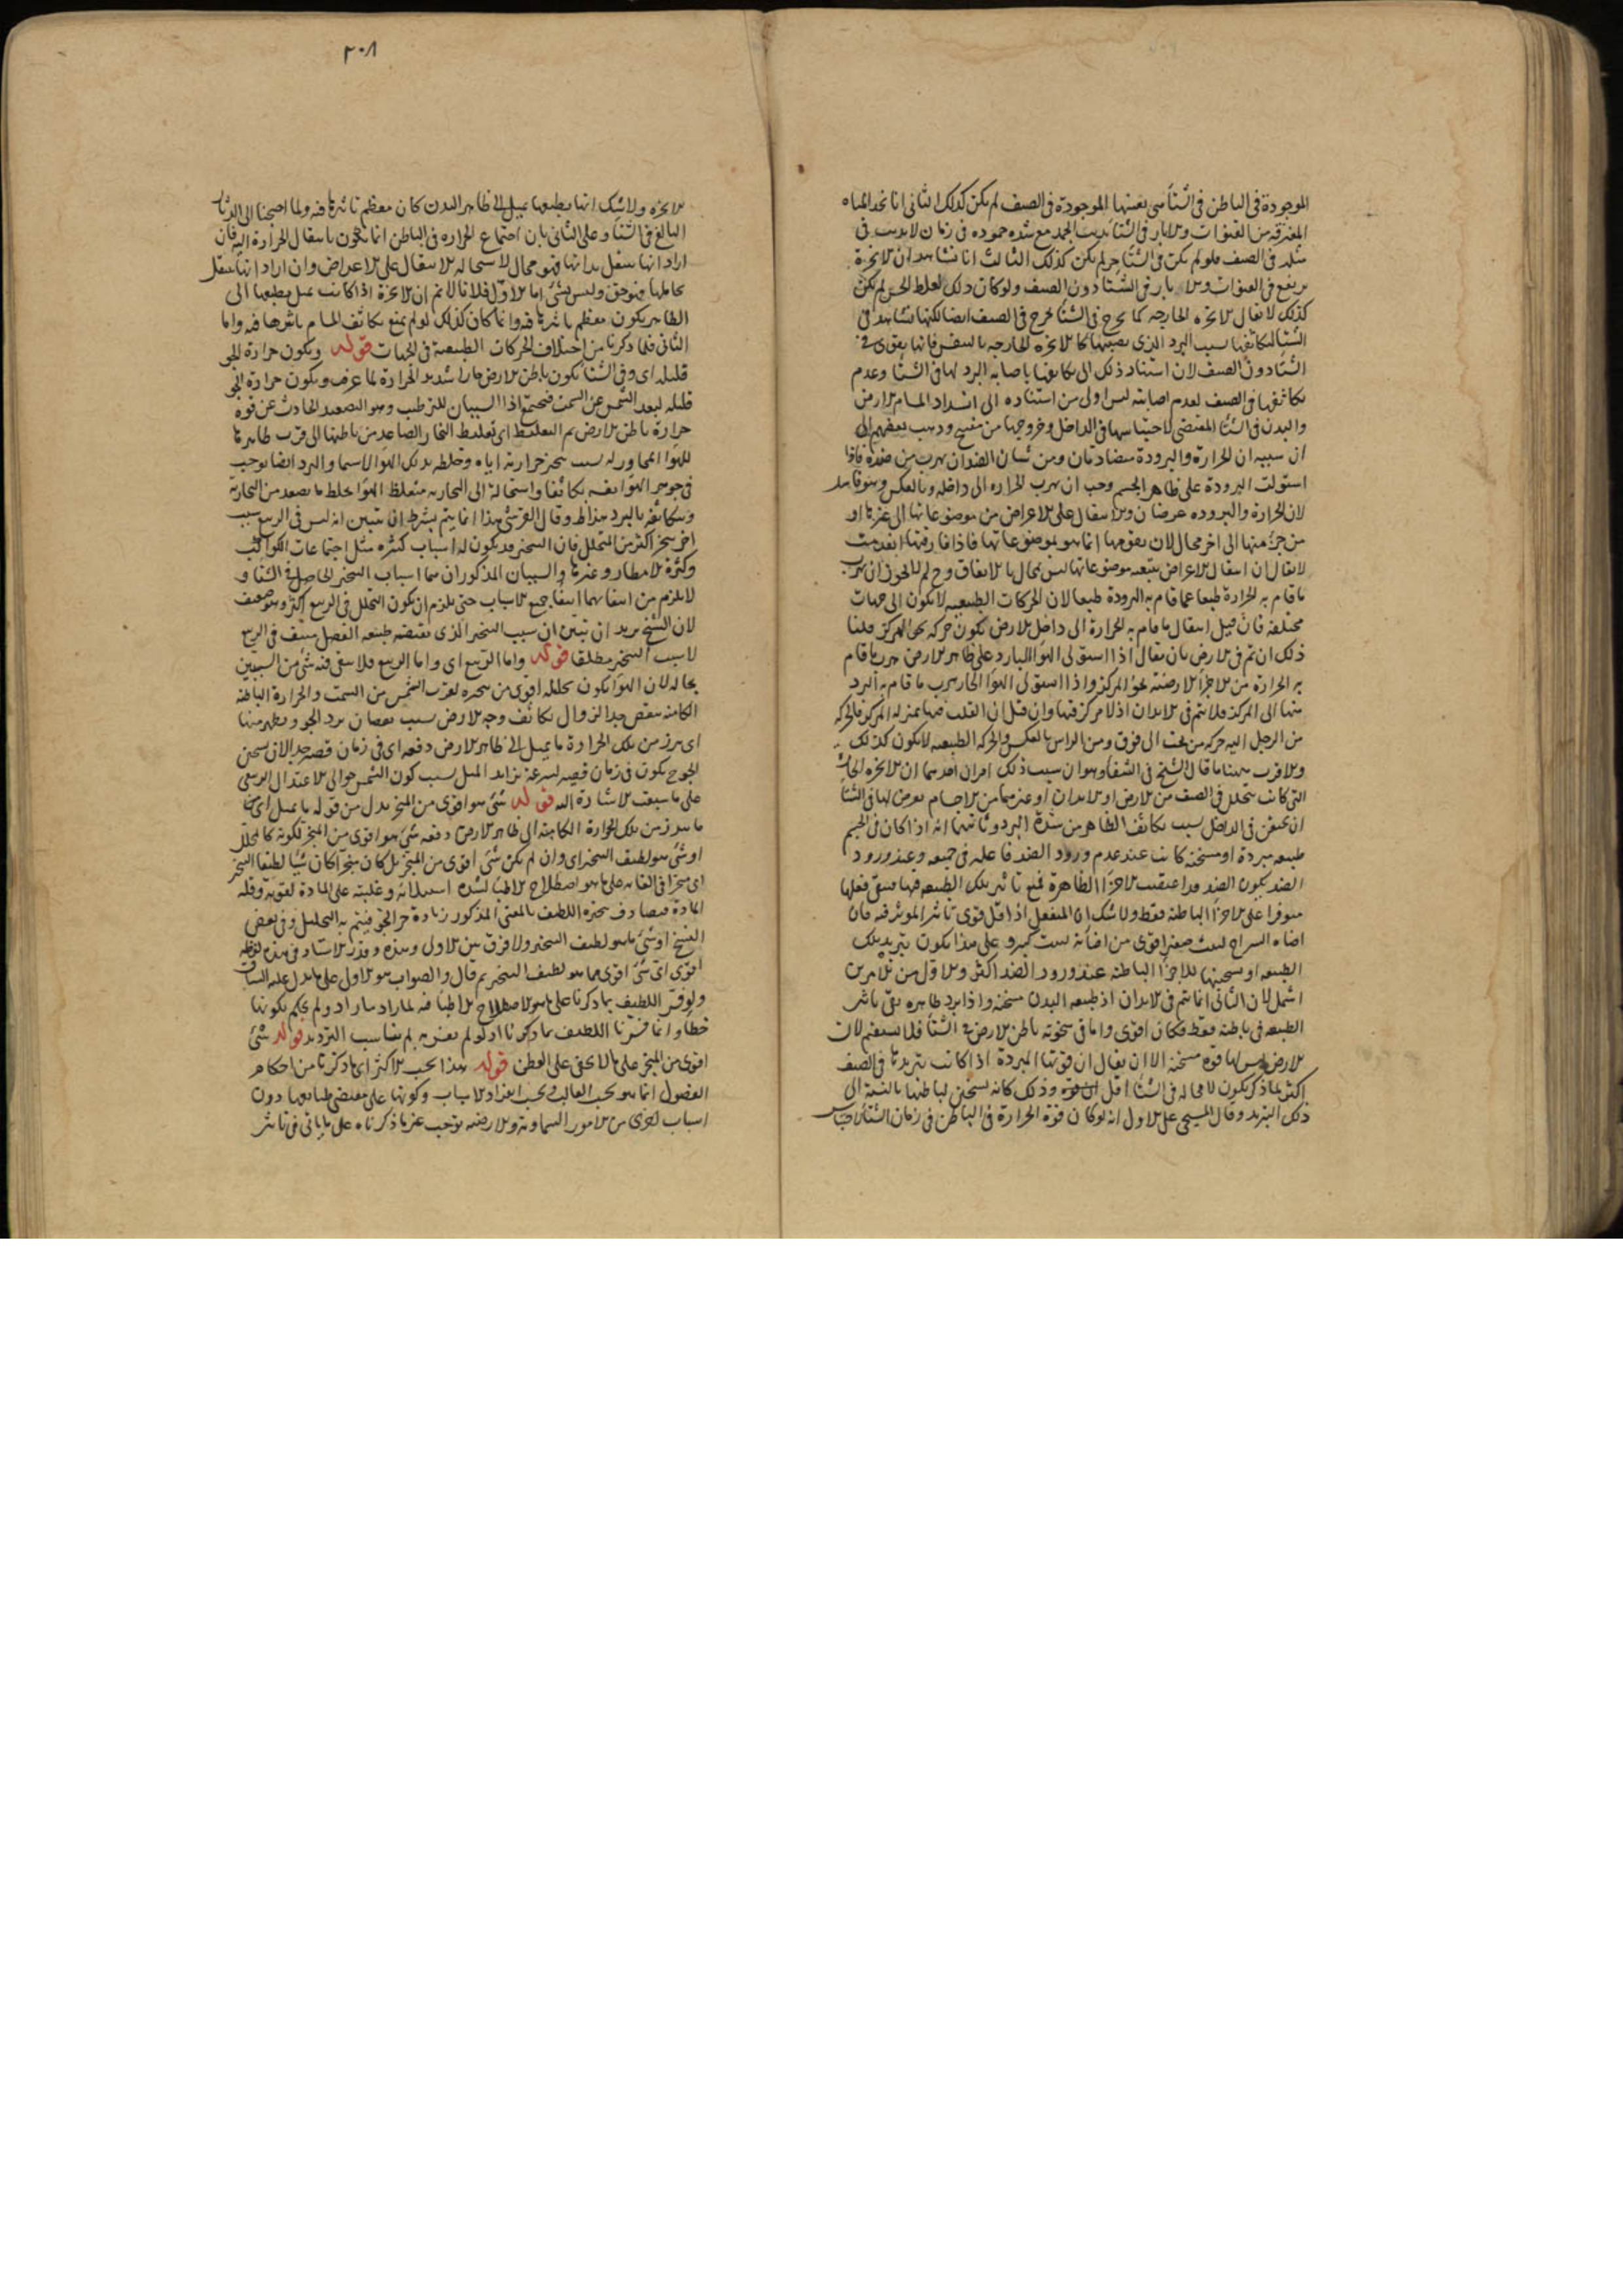 الموجودة فى الباطن فى الشتاء هى بعينها الموجودة فى الصيف لم يكن كذلك الثانى انا نجد المياه
المفترقة من القنوات والابار فى الشتاء يذيب الجمد مع شدة جموده فى زمان لا يذيب فى
مثله فى الصيف فلو لم يكن فى الشتاء حر لم يكن كذلك الثالث انا نشاهد ان الابخرة
يرتفع فى القنوات والابار فى الشتاء دون الصيف ولو كان ذلك لغلط الحس لم يكن
كذلك لا يقال الابخره الخارجه كما يخرج فى الشتا يخرج فى الصيف ايضا لكنها نشاهد فى
الشتا لتكاثفها بسبب البرد الذى يصيبها كالابخره الخارجه بالتنفس فانها يقوى فى
الشتاء دون الصيف لان استناد ذلك الى تكاثفها باصابه البرد لها فى الشتا وعدم
تكاثفها فى الصيف لعدم اصابته ليس اولى من استناده الى انسداد المسام للارض
والبدن فى الشتا المقتضى لاحتباسها فى الداخل وخروجها من وذهب بعضهم الى
ان سببه ان الحرارة والبرودة متضادتان ومن شان الضد ان يهرب من ضده فاذا
استولت البرودة على ظاهر الجسم وجب ان يهرب الحراره الى داخله وبالعكس وهو فاسد
لان الحرارة والبروده عرضان والانتقال على الاعراض من موضوعاتها الى غيرها او
من جزء منها الى اخر محال لان تقومها انما هو بموضوعاتها فاذا فارقتها انعدمت
لا يقال ان انتقال الاعراض بتبعيه موضوعاتها ليس بمحال بالاتفاق وح لم لا يجوز ان يهرب
ما قام به الحرارة طبعا عما قام به البرودة طبعا لان الحركات الطبيعيه لا يكون الى جهات
مختلفه فان قيل انتقال ما قام به الحرارة الى داخل الارض يكون حركه نحو المركز قلنا
ذلك ان تم فى الارض بان يقال اذا استولى الهوا البارد على ظاهر الارض هرب ما قام
به الحرارة من الاجزا الارضية نحو المركز واذا استولى الهوا الحار يهرب ما قام به البرد
منها الى المركز فلا يتم فى الابدان اذ لا مركز فيها وان قيل ان القلب فيها بمنزلة المركز فالحركه
من الرجل اليه حركه من تحت الى فوق ومن الراس بالعكس والحركه الطبيعيه لا يكون كذلك
والاقرب ههنا ما قال الشيخ فى الشفا وهو ان سبب ذلك امران احدهما ان الابخره الحارة
التى كانت يتحلل فى الصيف من الارض او الابدان او غيرهما من الاجسام يعرض لها فى الشتا
ان يحتقن فى الداخل بسبب تكاثف الظاهر من شدة البرد وثانيهما انه اذا كان فى الجسم
طبيعه مبردة او مسخنه كانت عند عدم ورود الضد فاعله فى جميعه وعند ورود
الضد يكون الضد قد الاجزا الظاهرة فمنع تاثير تلك الطبيعه فيها فيبقى فعلها
متوفرا على الاجزا الباطنه فقط ولا شك ان المنفعل اذا قل قوى تاثير الموثر فيه فان
اضاة السراج لبيت صغير اقوى من اضاءة لبيت كبير وعلى هذا يكون تبريد تلك
الطبيعه او تسخينها للاجزا الباطنه عند ورود الضد اكثر والاول من الامرين
اشمل لان الثانى انما يتم فى الابدان اذ طبيعه البدن مسخنه واذا برد ظاهره بقى تاثير
الطبيعه فى باطنه فقط فكان اقوى واما فى سخونة باطن الارض فى الشتا فلا يستقيم لان
الارض ليس لها قوة مسخنه الا ان يقال ان قوتها المبردة اذا كانت تبريدها فى الصيف
اكثر لما ذكر يكون لا محاله فى الشتا اقل وذلك كانه تسخين لباطنها بالنسبة الى
ذلك التبريد وقال المسيحى على الاول انه لو كان قوة الحرارة فى الباطن فى زمان الشتا لاحتباس
٢٠٨
الابخره ولا شك انها بطبعها تميل الى ظاهر البدن كان معظم تاثيرها فيه ولما احتجنا الى الدثار
البالغ فى الشتا وعلى الثانى بان اجتماع الحراره فى الباطن انما يكون بانتقال الحرارة اليه فان
اراد انها تنتقل بذاتها فهو محال لاستحالة الانتقال على الاعراض وان اراد انها تنتقل
بحاملها فهو حق وليس بشى اما الاول فلانا لا نم ان الابخرة اذا كانت تميل بطبعها الى
الظاهر يكون معظم تاثيرها فيه وانما كان كذلك لو لم يمنع تكاثف المسام تاثيرها فيه واما
الثانى فلما ذكرنا من اختلاف الحركات الطبيعية فى الجهات قوله ويكون حرارة الجو
قليله اى وفى الشتا يكون باطن الارض حارا شديد الحرارة لما عرف ويكون حرارة الجو
قليله لبعد الشمس عن السمت فيجتمع اذا السببان للترطيب وهو التصعيد الحادث عن قوة
حرارة باطن الارض ثم التغليظ اى تغليظ البخار الصاعد من باطنها الى قرب ظاهرها
للهوا المجاور له بسبب تبخير حرارته اياه وخلطه بذلك الهوا لا سيما والبرد ايضا يوجب
فى جوهر الهوا نفسه تكاثفا واستحاله الى البخاريه فيتغلظ الهوا بخلط ما يصعد من البخارية
وبتكاثفه بالبرد هذا وقال القرشى هذا انما يتم بشرط ان يتبين انه ليس فى الربيع سبب
اخر يبخر اكثر من المتحلل فان التبخير قد يكون له اسباب كثيره مثل اجتماعات الكواكب
وكثرة الامطار وغيرها والسببان المذكوران هما اسباب التبخير الحاصل فى الشتا و
لا يلزم من انتفائهما انتفا جميع الاسباب حتى يلزم ان يكون التحلل فى الربيع اكثر وهو ضعيف
لان الشيخ يريد ان يتبين ان سبب التبخير الذى تقتضيه طبيعه الفصل منتف فى الربيع
لا سبب التبخير مطلقا قوله واما الربيع اى واما الربيع فلا يبقى فيه شى من السببين
بحاله لان الهوا يكون تحلله اقوى من تبخيره لقرب الشمس من السمت والحرارة الباطنه
الكامنه ينقص جدا لزوال تكاثف وجه الارض بسبب نقصان برد الجو ويظهر منها
اى يبرز من تلك الحرارة ما يميل الى ظاهر الارض دفعه اى فى زمان قصير جدا لان تسخين
الجو ح يكون فى زمان قصير لسرعة تزايد الميل بسبب كون الشمس حوالى الاعتدال الربيعى
على ما سبقت الاشارة اليه قوله شى هو اقوى من المبخر بدل من قوله ما يميل اى
ما يبرز من تلك الحرارة الكامنه الى ظاهر الارض دفعه شى هو اقوى من المبخر لكونه كالمحلل
او شى هو لطيف التبخير اى وان لم يكن شى اقوى من المبخر بل كان مبخرا كان شيا لطيفا لتبخير
اى مبخرا فى الغايه على ما هو اصطلاح الاطبا لشدة استيلائه وغلبته على المادة لقوته وقلة
المادة فيصادف تبخيره اللطيف بالمعنى المذكور زيادة حر الجو فيتم به التحليل وفى بعض
النسخ او شى ما هو لطيف التبخير ولا فرق بين الاول وهذه وقدر الاستاد فى هذه لفظه
اقوى اى شى اقوى مما هو لطيف التبخير ثم قال والصواب هو الاول على ما يدل عليه السياق
ولو فسر اللطيف بما ذكرنا على ما هو الاصطلاح الاطبا فيه لما اراد ما اراد ولم يحكم بكونها
خطا وانما فسرنا اللطيف بما ذكرنا اذ لو لم نفسره به لم يناسب الترديد قوله شى
اقوى من المبخر على ما لا يخفى على الفطن قوله هذا بحسب الاكثر اى ما ذكرنا من احكام
الفصول انما هو بحسب الغالب وبحسب انفراد الاسباب وكونها على مقتضى طبائعها دون
اسباب اخرى من الامور السماوية والارضيه توجب غير ما ذكرناه على ما ياتى فى تاثير